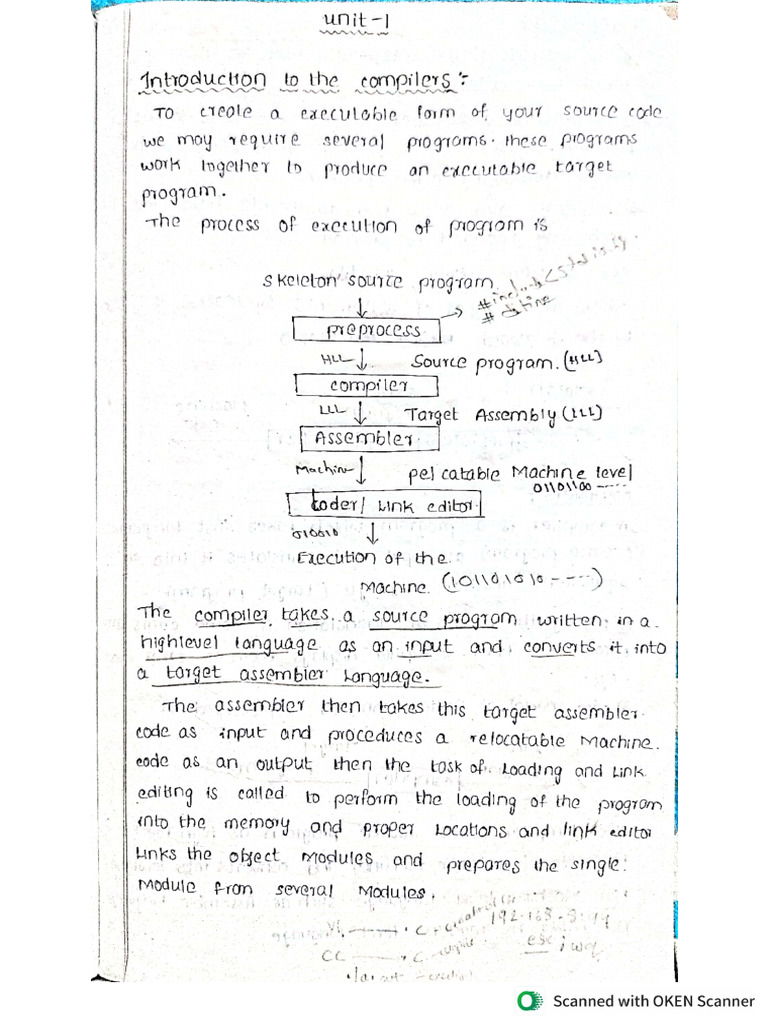 unit-1
Introduction to the compilers:-
To create a executable form of your source code
we may require several programs. these programs
work together to produce an executable target
program.
The process of execution of program is
Skeleton source program
preprocess → #
# define
HLL ↓ Source program. (HLL)
compiler
LLL ↓ Target Assembly (LLL)
Assembler
Machine ↓ pelcatable Machine level
01101100 -----
Loder / Link editor
010010 ↓
Execution of the
Machine. (101101010 ----)
The compiler takes a source program written in a
highlevel language as an input and converts it into
a target assembler Language.
The assembler then takes this target assembler
code as input and proceduces a relocatable Machine
code as an output then the task of Loading and Link
editing is called to perform the loading of the program
into the memory and proper Locations and link editor
Links the object Modules and prepares the single
Module fron several Modules.
192.168.
cc
esc
Scanned with OKEN Scanner